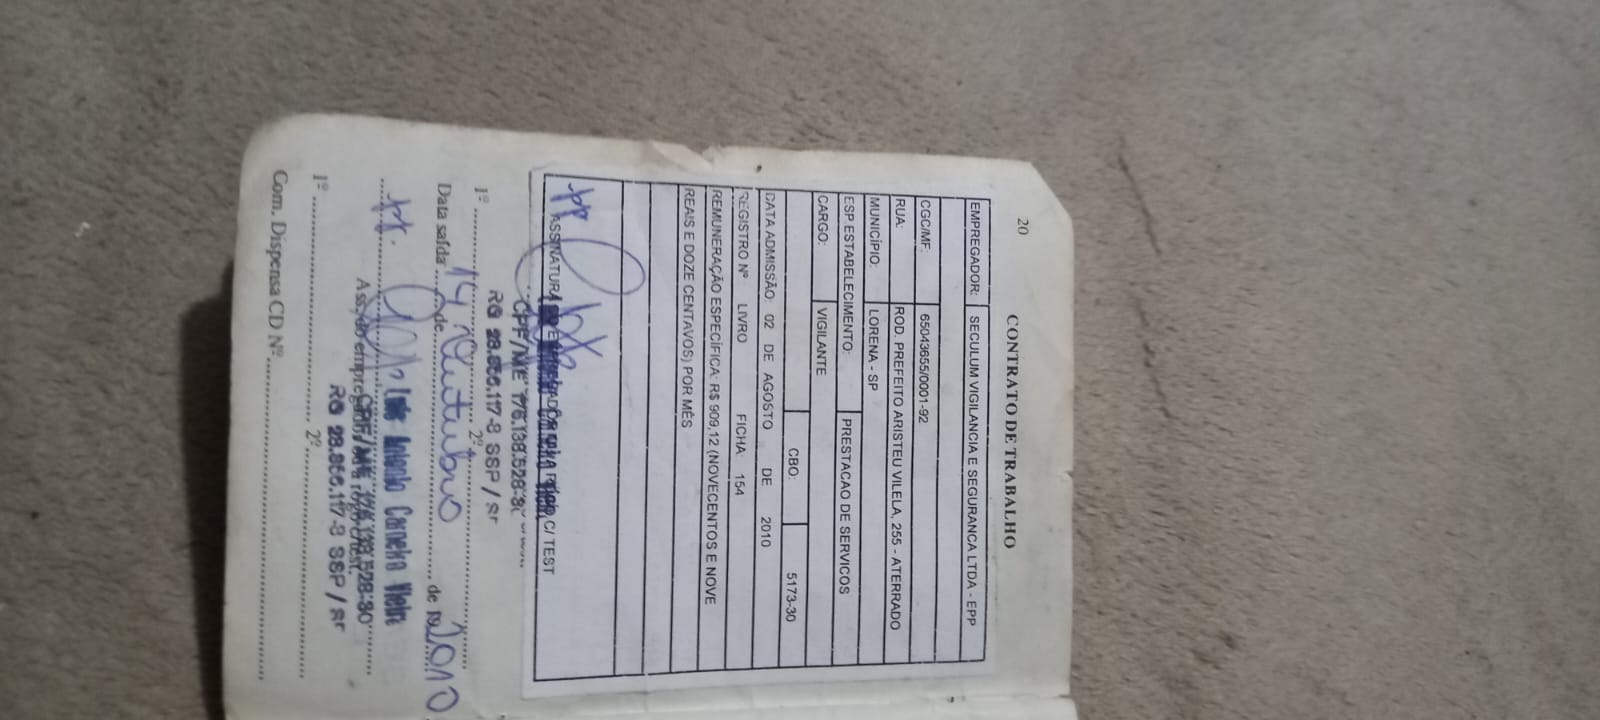 20
CONTRATO DE TRABALHO
EMPREGADOR: SECULUM VIGILANCIA E SEGURANCA LTDA - EPP
CGC/MF: 65043655/0001-92
RUA: ROD. PREFEITO ARISTEU VILELA, 255 - ATERRADO
MUNICÍPIO: LORENA - SP
ESP. ESTABELECIMENTO: PRESTACAO DE SERVICOS
CARGO: VIGILANTE
CBO: 5173-30
DATA ADMISSÃO: 02 DE AGOSTO DE 2010
REGISTRO Nº LIVRO FICHA: 154
REMUNERAÇÃO ESPECÍFICA: R$ 909,12 (NOVECENTOS E NOVE
REAIS E DOZE CENTAVOS) POR MÊS
ASSINATURA C/ TEST
CPF/MF 176.138.528-80
RG 28.856.117-8 SSP / SP
1º 2º
Data saída 14 de Outubro de 2010
Luis Antonio Carneiro Vieira
Ass. do empregador ou a rogo c/ test.
CPF/MF 176.138.528-80
RG 28.856.117-8 SSP / SP
1º 2º
Com. Dispensa CD Nº